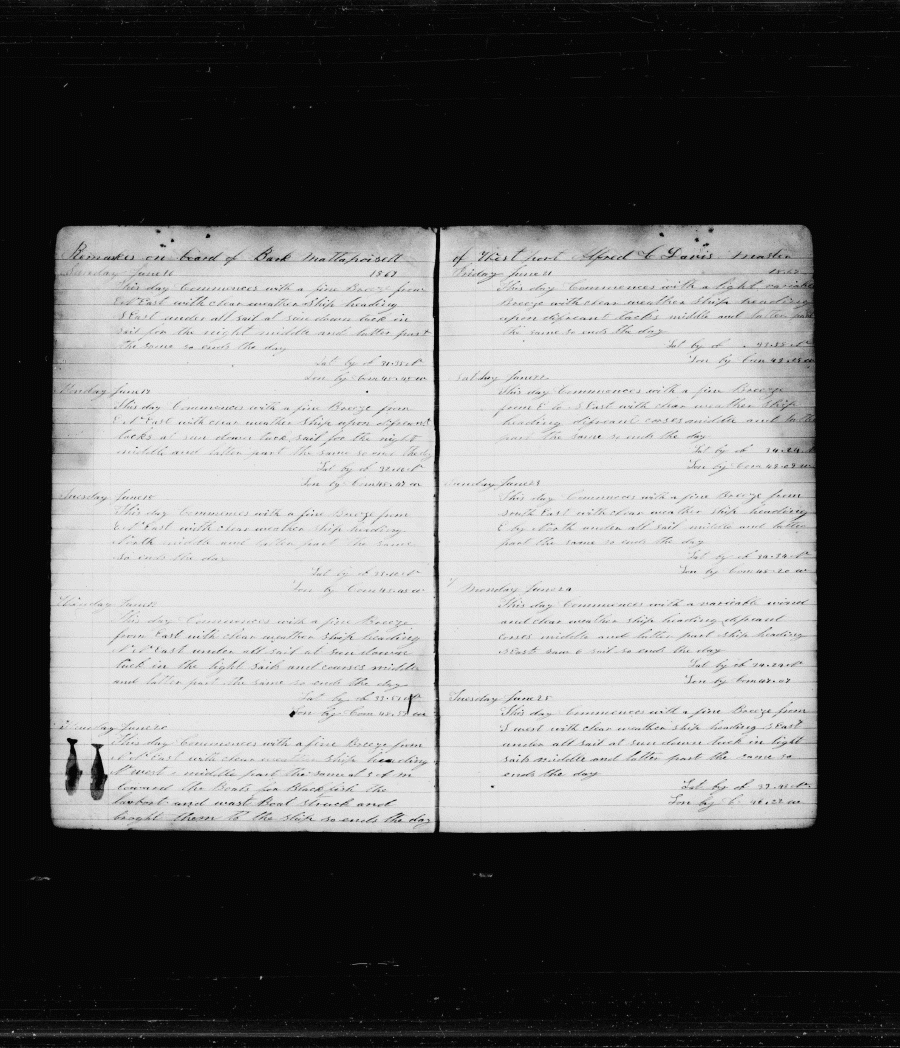 Remarks on board of Bark Mattapoisett
Sunday June 16 1867
This day Commences with a fine Breeze from
E N East with clear weather Ship heading
S East under all sail at sun down took in
sail for the night middle and latter part
the same so ends the day
Lat by A 31.35 N
Lon by Crom 48.48 W
Monday June 17
This day Commences with a fine Breeze from
E N East with clear weather Ship upon
tacks at sun down took sail for the night
middle and latter part the same so ends the day
Lat by A 32.10 N
Lon by Crom 48.47 W
Tuesday June 18
This day Commences with a fine Breeze from
E N East with clear weather Ship heading
North middle and latter part the same
so ends the day
Lat by A
Lon by Crom
June 19
This day Commences with a fine Breeze
from East with clear weather Ship heading
N N East under all sail at sun down
took in the light sails and courses middle
and latter part the same so ends the day
Lat by A 33.51 N
Lon by Crom 48.59 W
June 20
This day Commences with a fine Breeze from
East with clear weather Ship heading
N west middle part the same at 5 A m
lowerd the Boats for Blackfish the
larbort and wast Boat struck and
braght them to the ship so ends the day
of West port Alfred C Davis master
Friday June 21 1867
This day Commences with a light variable
Breeze with clear weather Ship heading
upon tacks middle and latter part
the same so ends the day
Lat by A
Lon by Crom
Saturday June 22
This day Commences with a fine Breeze
from E to S East with clear weather Ship
heading middle and latter
part the same so ends the day
Lat by A
Lon by Crom 48.08 W
Sunday June 23
This day Commences with a fine Breeze from
south East with clear weather Ship heading
E by North under all sail middle and latter
part the same so ends the day
Lat by A 34.34 N
Lon by Crom 48.20 W
Monday June 24
This day Commences with a variable wind
and clear weather Ship heading
middle and latter part Ship heading
S East sail so ends the day
Lat by A 34.24 N
Lon by Crom 47.07
Tuesday June 25
This day Commences with a fine Breeze from
S west with clear weather Ship heading S East
under all sail at sun down took in light
sails middle and latter part the same so
ends the day
Lat by A
Lon by C